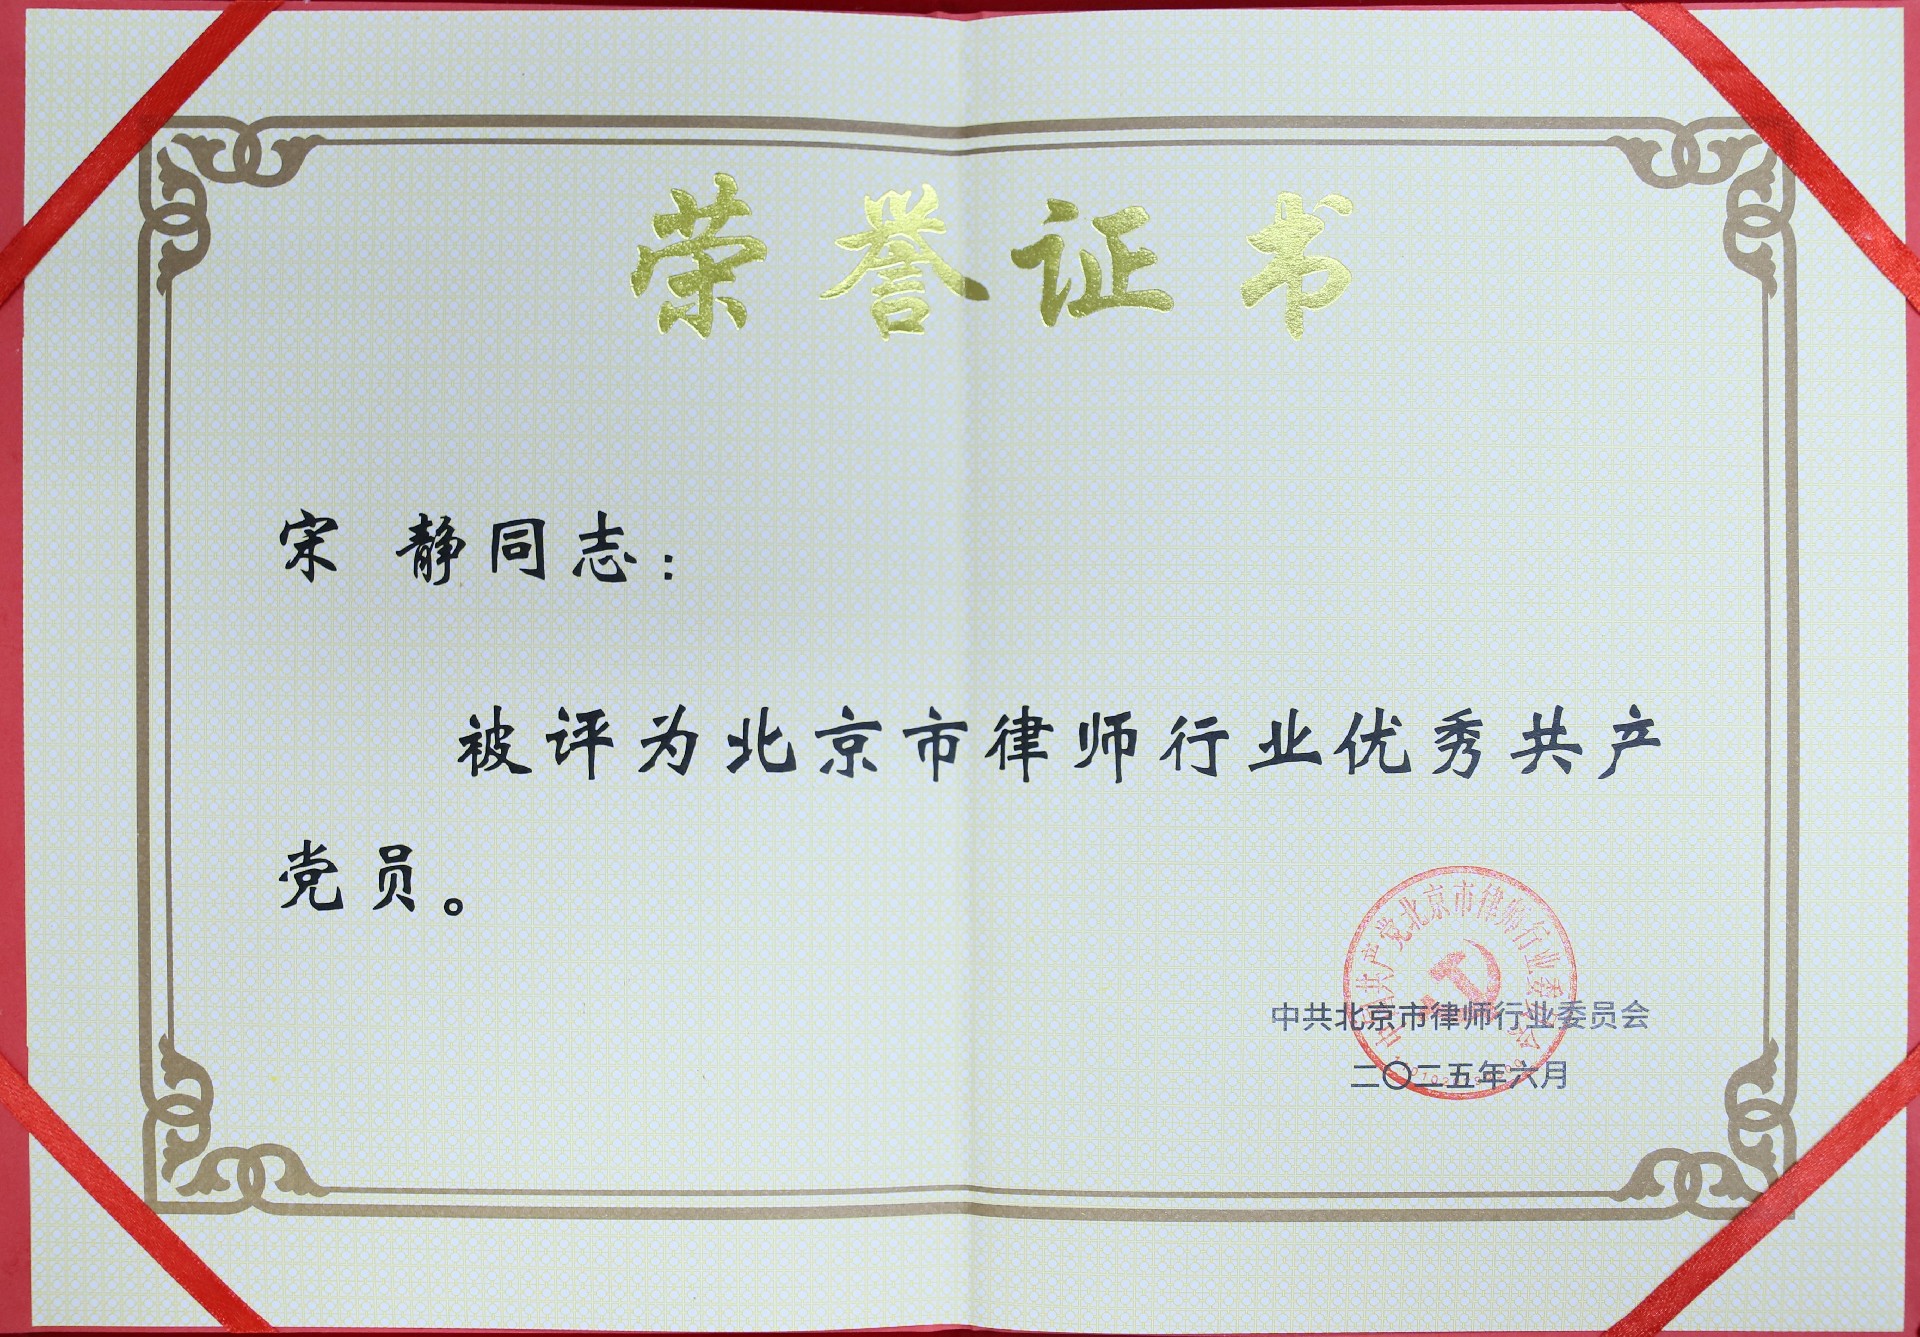 荣誉证书
宋 静同志：
被评为北京市律师行业优秀共产
党员。
中国共产党北京市律师行业委员会
中共北京市律师行业委员会
二〇二五年六月